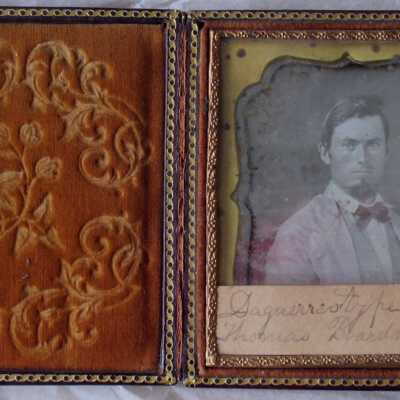 Daguerreotype
Thomas